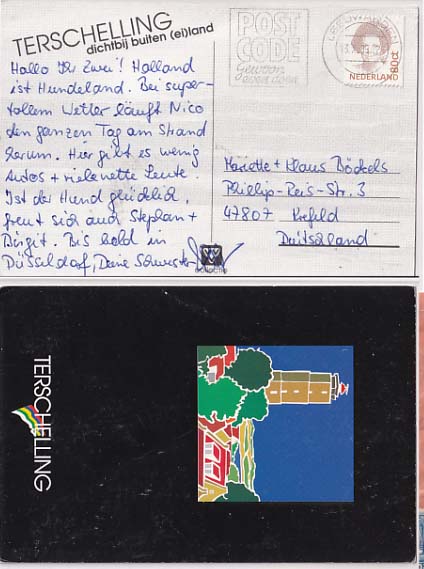 TERSCHELLING
dichtbij buiten (ei)land
Hallo Ihr Zwei! Holland
ist Hundeland. Bei super-
tollem Wetter läuft Nico
den ganzen Tag am Strand
herum. Hier gibt es wenig
Autos + viele nette Leute.
Ist der Hund glücklich,
freut sich auch Stephan +
Birgit. Bis bald in
Düsseldorf, Deine Schwester
VVV
collectie
POST
CODE
Gewoon
even doen
NEDERLAND
80ct
Mariette + Klaus Böckels
Philipp-Reis-Str. 3
47807 Krefeld
Deutschland
TERSCHELLING